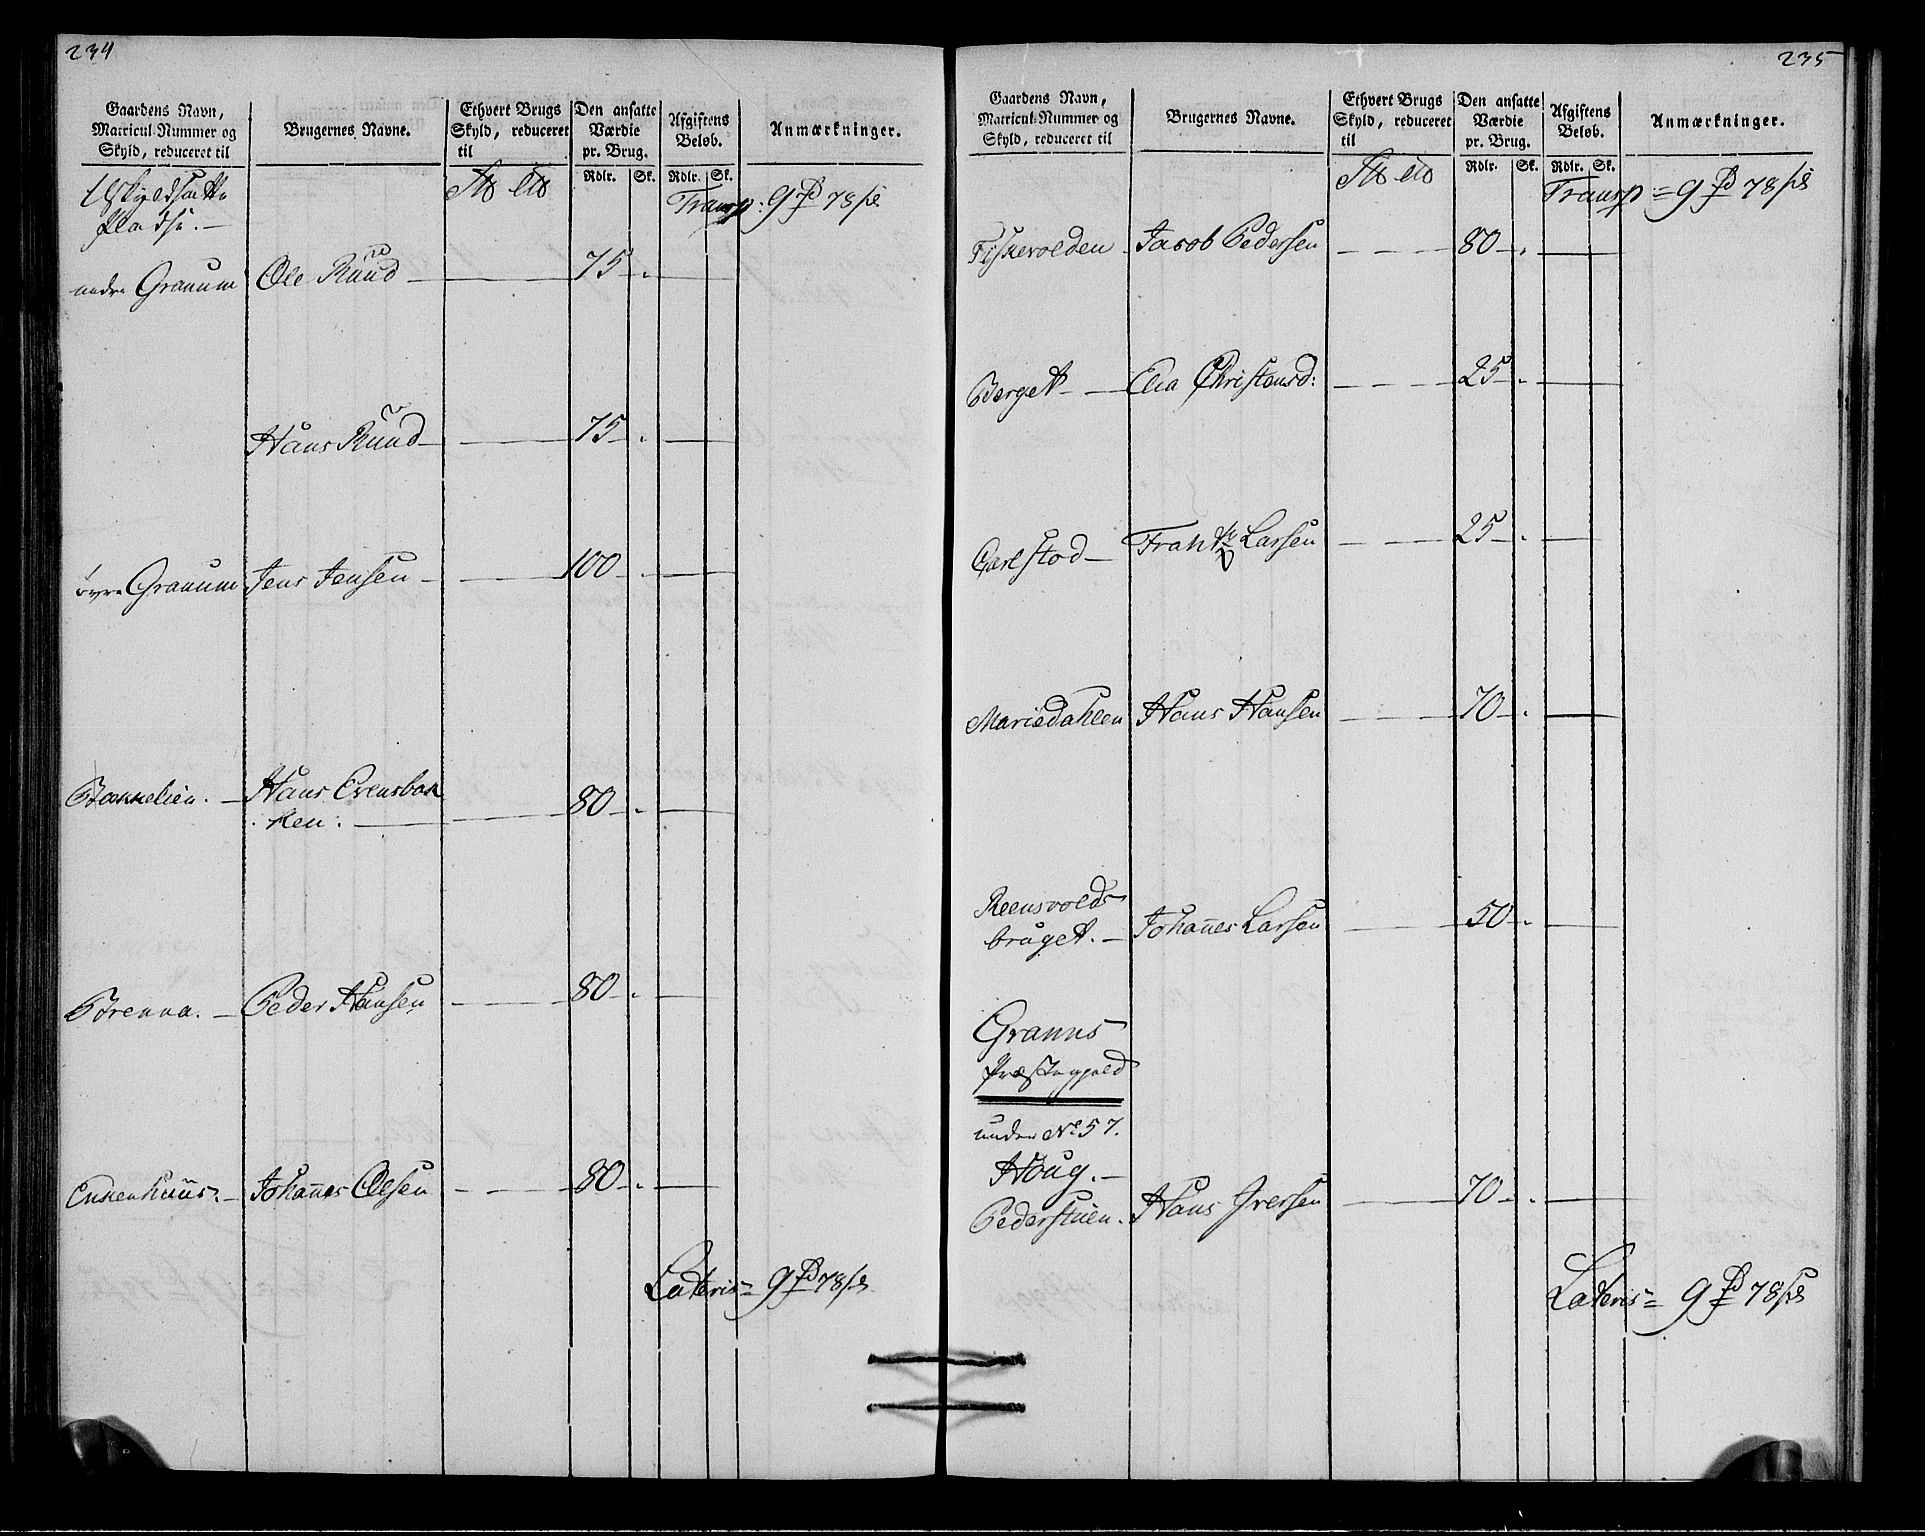 234
Gaardens Navn,
Matricul-Nummer og
Skyld, reduceret til
Brugernes Navne.
Ethvert Brugs
Skyld, reduceret
til
Den ansatte
Værdie
pr. Brug.
Rdlr. Sk.
Afgiftens
Beløb.
Rdlr. Sk.
Anmærkninger.
Uskyldsatte
Pladse. —
Transp: 9 78 s
nedre Granum Ole Ruud — 75 - . —
Hans Ruud — 75 - . —
øvre Granum Jens Jensen — 100 - . —
Bækkelien. — Hans Evensbak
ken. — 80 - . —
Brenna. — Peder Hansen — 80 - . —
Enkenhuus. — Johannes Olsen — 80 - . —
Lateris = 9 78 s
235
Gaardens Navn,
Matricul-Nummer og
Skyld, reduceret til
Brugernes Navne.
Ethvert Brugs
Skyld, reduceret
til
Den ansatte
Værdie
pr. Brug.
Rdlr. Sk.
Afgiftens
Beløb.
Rdlr. Sk.
Anmærkninger.
Transp = 9 78 s
Fiskevolden Jacob Pedersen — 80 - . —
Berget — Elia Christensd: — 25 - . —
Carlstad — Larsen — 25 - . —
Mariedahlen Hans Hansen — 70 - . —
Reensvolds
bruget. — Johannes Larsen — 50 - . —
Granns
Præstegjeld
under No 57.
Houg. —
Pederstuen. Hans Iversen — 70 - . —
Lateris = 9 78 s